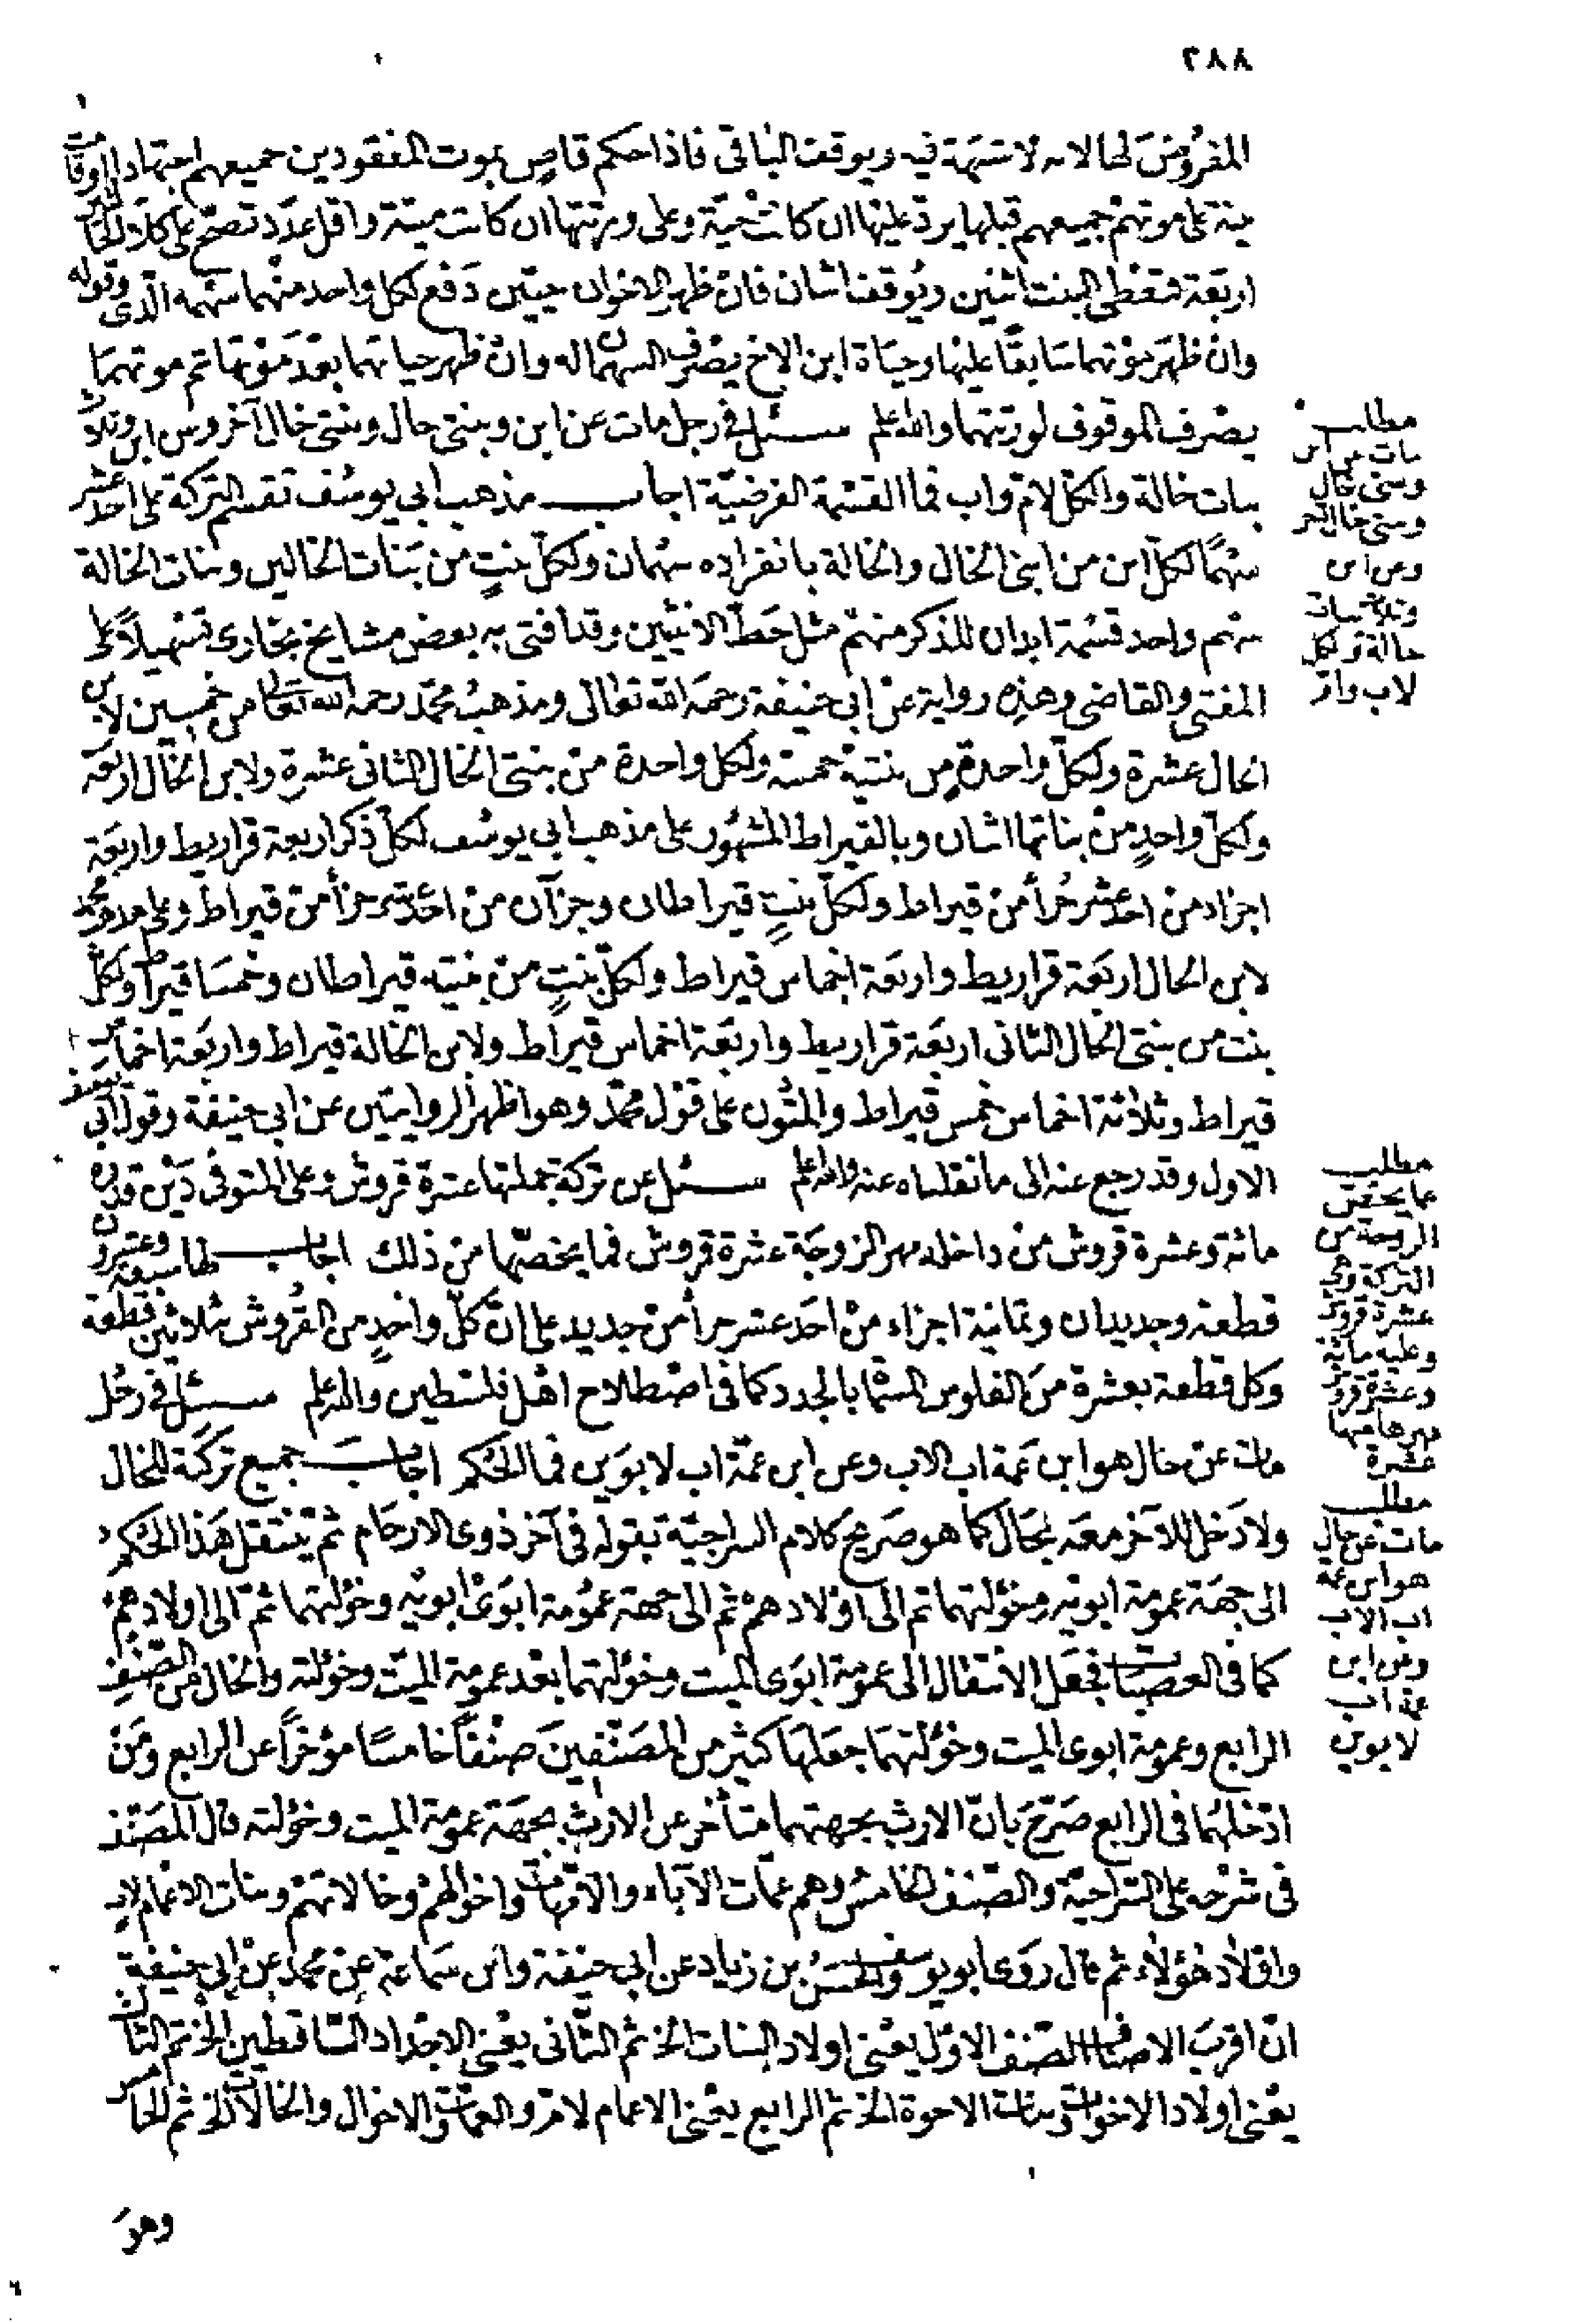 ٢٨٨
المفروض لها لانه لا شبهة فيه ويوقف الباقى فاذا حكم قاضٍ بموت المفقودين جميعهم اجتهادا او قامت
بينة على موتهم جميعهم قبلها يرد عليها ان كانت حيّة وعلى ورثتها ان كانت ميتة واقل عدد تصح على كلا
اربعة فتعطى البنت اثنين ويُوقف اثنان فان ظهر الاخوان حيّين دفع لكل واحد منهما سهمه الذى وقوله
وان ظهر موتهما سابقًا عليها وحياة ابن الاخ يصرف السهمان له وان ظهر حياتهما بعد موتها ثم موتهما
يصرف الموقوف لورثتهما والله اعلم سئل فى رجل مات عن ابن وبنتى خال وبنتى خال آخر وعن ابن وثلاث
بنات خالة والكل لام واب فما القسمة الفرضيّة اجاب مذهب ابى يوسف تقسم التركة على احد عشر
سهمًا لكل ابن من ابنى الخال والخالة بانفراده سهمان ولكل بنتٍ من بنات الخالين وبنات الخالة
سهم واحد قسمة ابدان للذكر منهم مثل حظ الانثيين وقد افتى به بعض مشايخ بخارى تسهيلاً على
المفتى والقاضى وهذه رواية عن ابى حنيفة رحمه الله تعالى ومذهب محمّد رحمه الله تعالى من خمسين لابن
الخال عشرة ولكل واحدةٍ من بنتيه خمسة ولكل واحدة من بنتى الخال الثانى عشرة ولابن الخالة اربعة
ولكل واحدٍ من بناتها اثنان وبالقيراط المشهور على مذهب ابى يوسف لكل ذكر اربعة قراريط واربعة
اجزاء من احد عشر جُزأ من قيراط ولكل بنتٍ قيراطان وجزآن من احد عشر جزأ من قيراط وعلى مذهب محمد
لابن الخال اربعة قراريط واربعة اخماس قيراط ولكل بنتٍ من بنتيه قيراطان وخمسا قيراط ولكل
بنت من بنتى الخال الثانى اربعة قراريط واربعة اخماس قيراط ولابن الخالة قيراط واربعة اخماس
قيراط وثلاثة اخماس خمس قيراط والمتون على قول محمّد وهو اظهر الروايتين عن ابى حنيفة وقول ابى يوسف
الاول وقد رجع عنه الى ما نقلناه عنه والله اعلم سئل عن تركة جملتها عشرة قروش وعلى المتوفى دين قدره
مائة وعشرة قروش من داخله مهر الزوجة عشرة قروش فما يخصّها من ذلك اجاب لها سبعة وعشرون
قطعة وجديدان وثمانية اجزاء من احد عشر جزأ من جديد على ان كلّ واحدٍ من القُروش ثلاثين قطعة
وكل قطعة بعشرة من الفلوس المسماة بالجدد كما فى اصطلاح اهل فلسطين والله اعلم سئل فى رجُل
مات عن خال هو ابن عمة اب الاب وعن ابن عمّة اب لابوين فما الحكم اجاب جميع تركة للخال
ولا دخل للآخر معه بحال كما هو صريح كلام السراجيّة بقوله فى آخر ذوى الارحام ثم ينتقل هذا الحكم
الى جهة عمومة ابويه وخؤلتهما ثم الى اولادهم ثم الى جهة عمُومة ابوى ابويه وخؤلتهما ثمّ الى اولادهم
كما فى العصبات فجعل الانتقال الى عمومة ابوى الميت وخؤلتهما بعد عمومة الميت وخؤلته والخال من الصنف
الرابع وعمومة ابوى الميت وخؤلتهما جعلها كثير من المصنّفين صنفاً خامسًا مؤخراً عن الرابع ومن
ادخلهما فى الرابع صرّح بان الارث بجهتهما متأخر عن الارث بجهة عمومة الميت وخؤلته قال المصنف
فى شرحه على السراجية والصنف الخامس وهم عمات الآباء والامّهات واخوالهم وخالاتهم وبنات الاعمام لام
واولاد هؤلاء ثم قال روى ابو يوسف والحسن بن زياد عن ابى حنيفة وابن سماعة عن محمّد عن ابى حنيفة
انّ اقرب الاصناف الصنف الاوّل يعنى اولاد البنات الخ ثم الثانى يعنى الاجداد الساقطين الخ ثم الثالث
يعنى اولاد الاخوات وبنات الاخوة الخ ثم الرابع يعنى الاعمام لام والعمات والاخوال والخالات الخ ثم الخامس
وهو
مطلب
مات عن ابن
وبنتى خال
وبنتى خال آخر
وعن ابن
وثلاث بنات
خالة والكل
لاب وام
مطلب
عما يخص
الزوجة من
التركة وهى
عشرة قروش
وعليه مائة
وعشرة قروش
مهرها منها
عشرة
مطلب
مات عن خال
هو ابن عمة
اب الاب
وعن ابن
عمة اب
لابوين